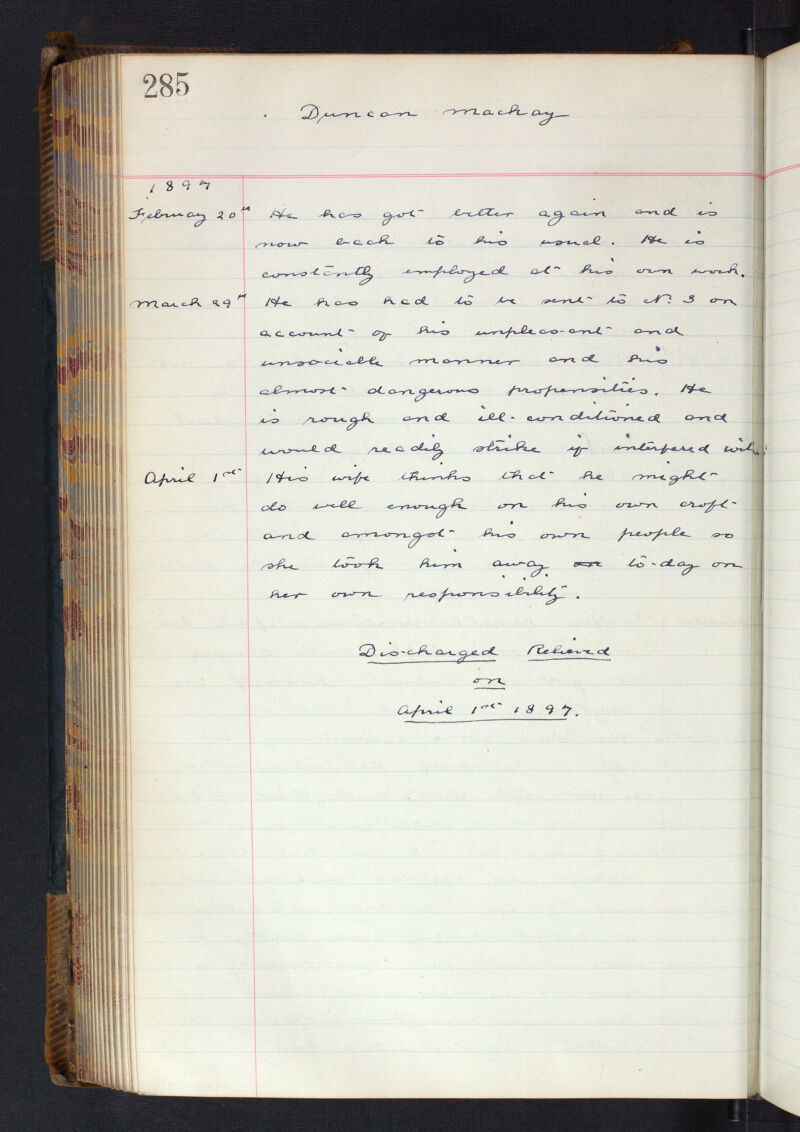 285
Duncan Mackay
1897
February 20th He has got better again and is
now back to his usual. He is
constantly employed at his own work.
March 29th He has had to be sent to No. 3 on
account of his unpleasant and
unsociable manner and his
almost dangerous propensities. He
is rough and ill-conditioned and
would readily strike if interfered with.
April 1st His wife thinks that he might
do well enough on his own croft
and amongst his own people so
she took him away to-day on
her own responsibility.
Discharged Relieved
on
April 1st 1897.